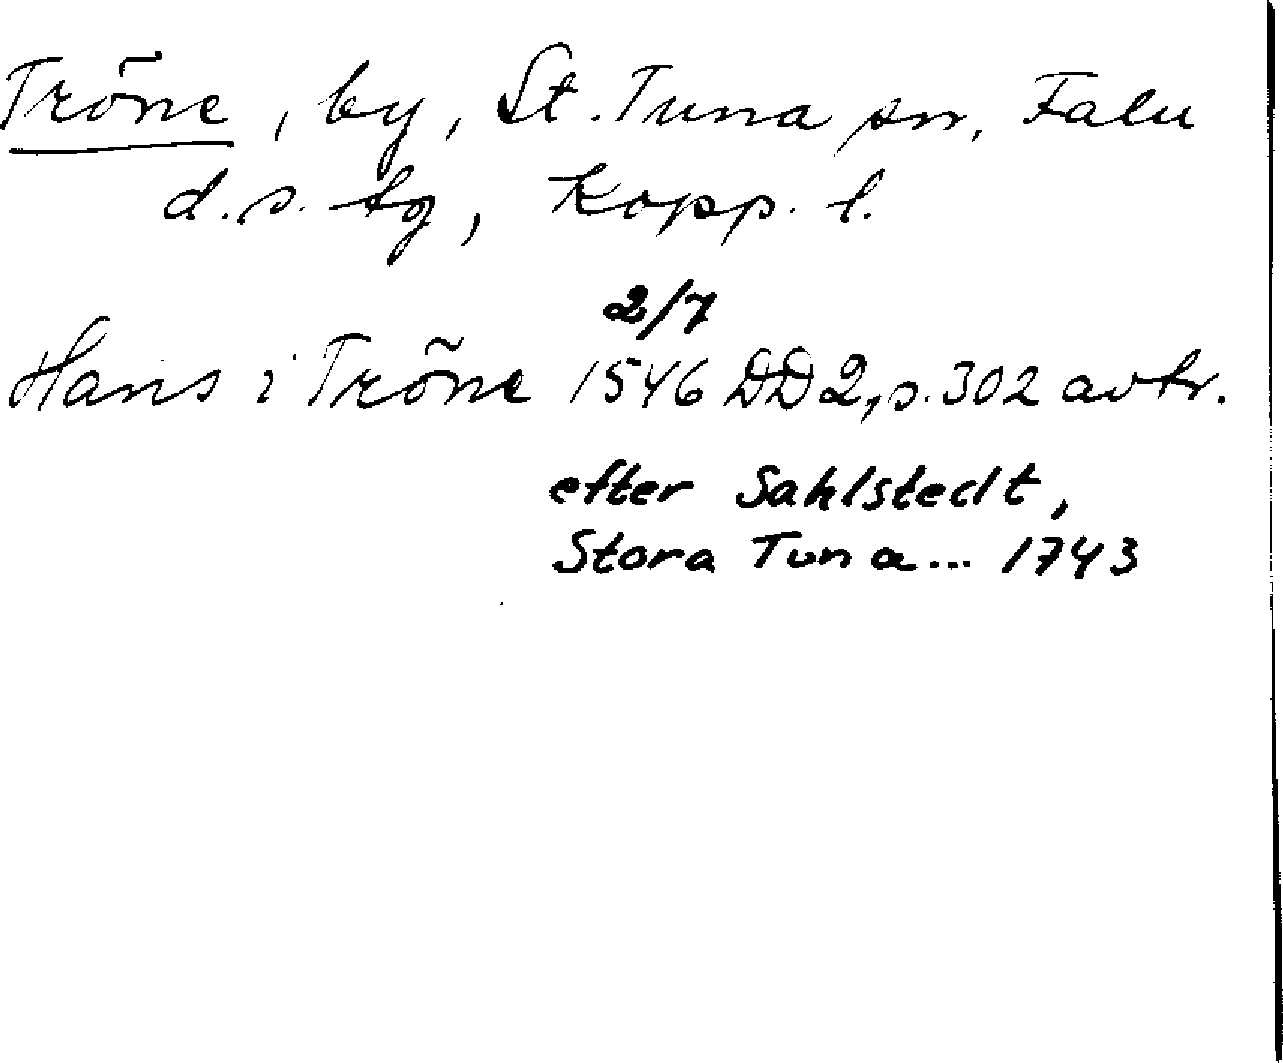 Tröne, by, St. Tuna sn, Falu
d.s. tg, Kopp. l.
2/7
Hans i Tröne 1546 DD2, s. 302 avtr.
efter Sahlstedt,
Stora Tuna... 1743